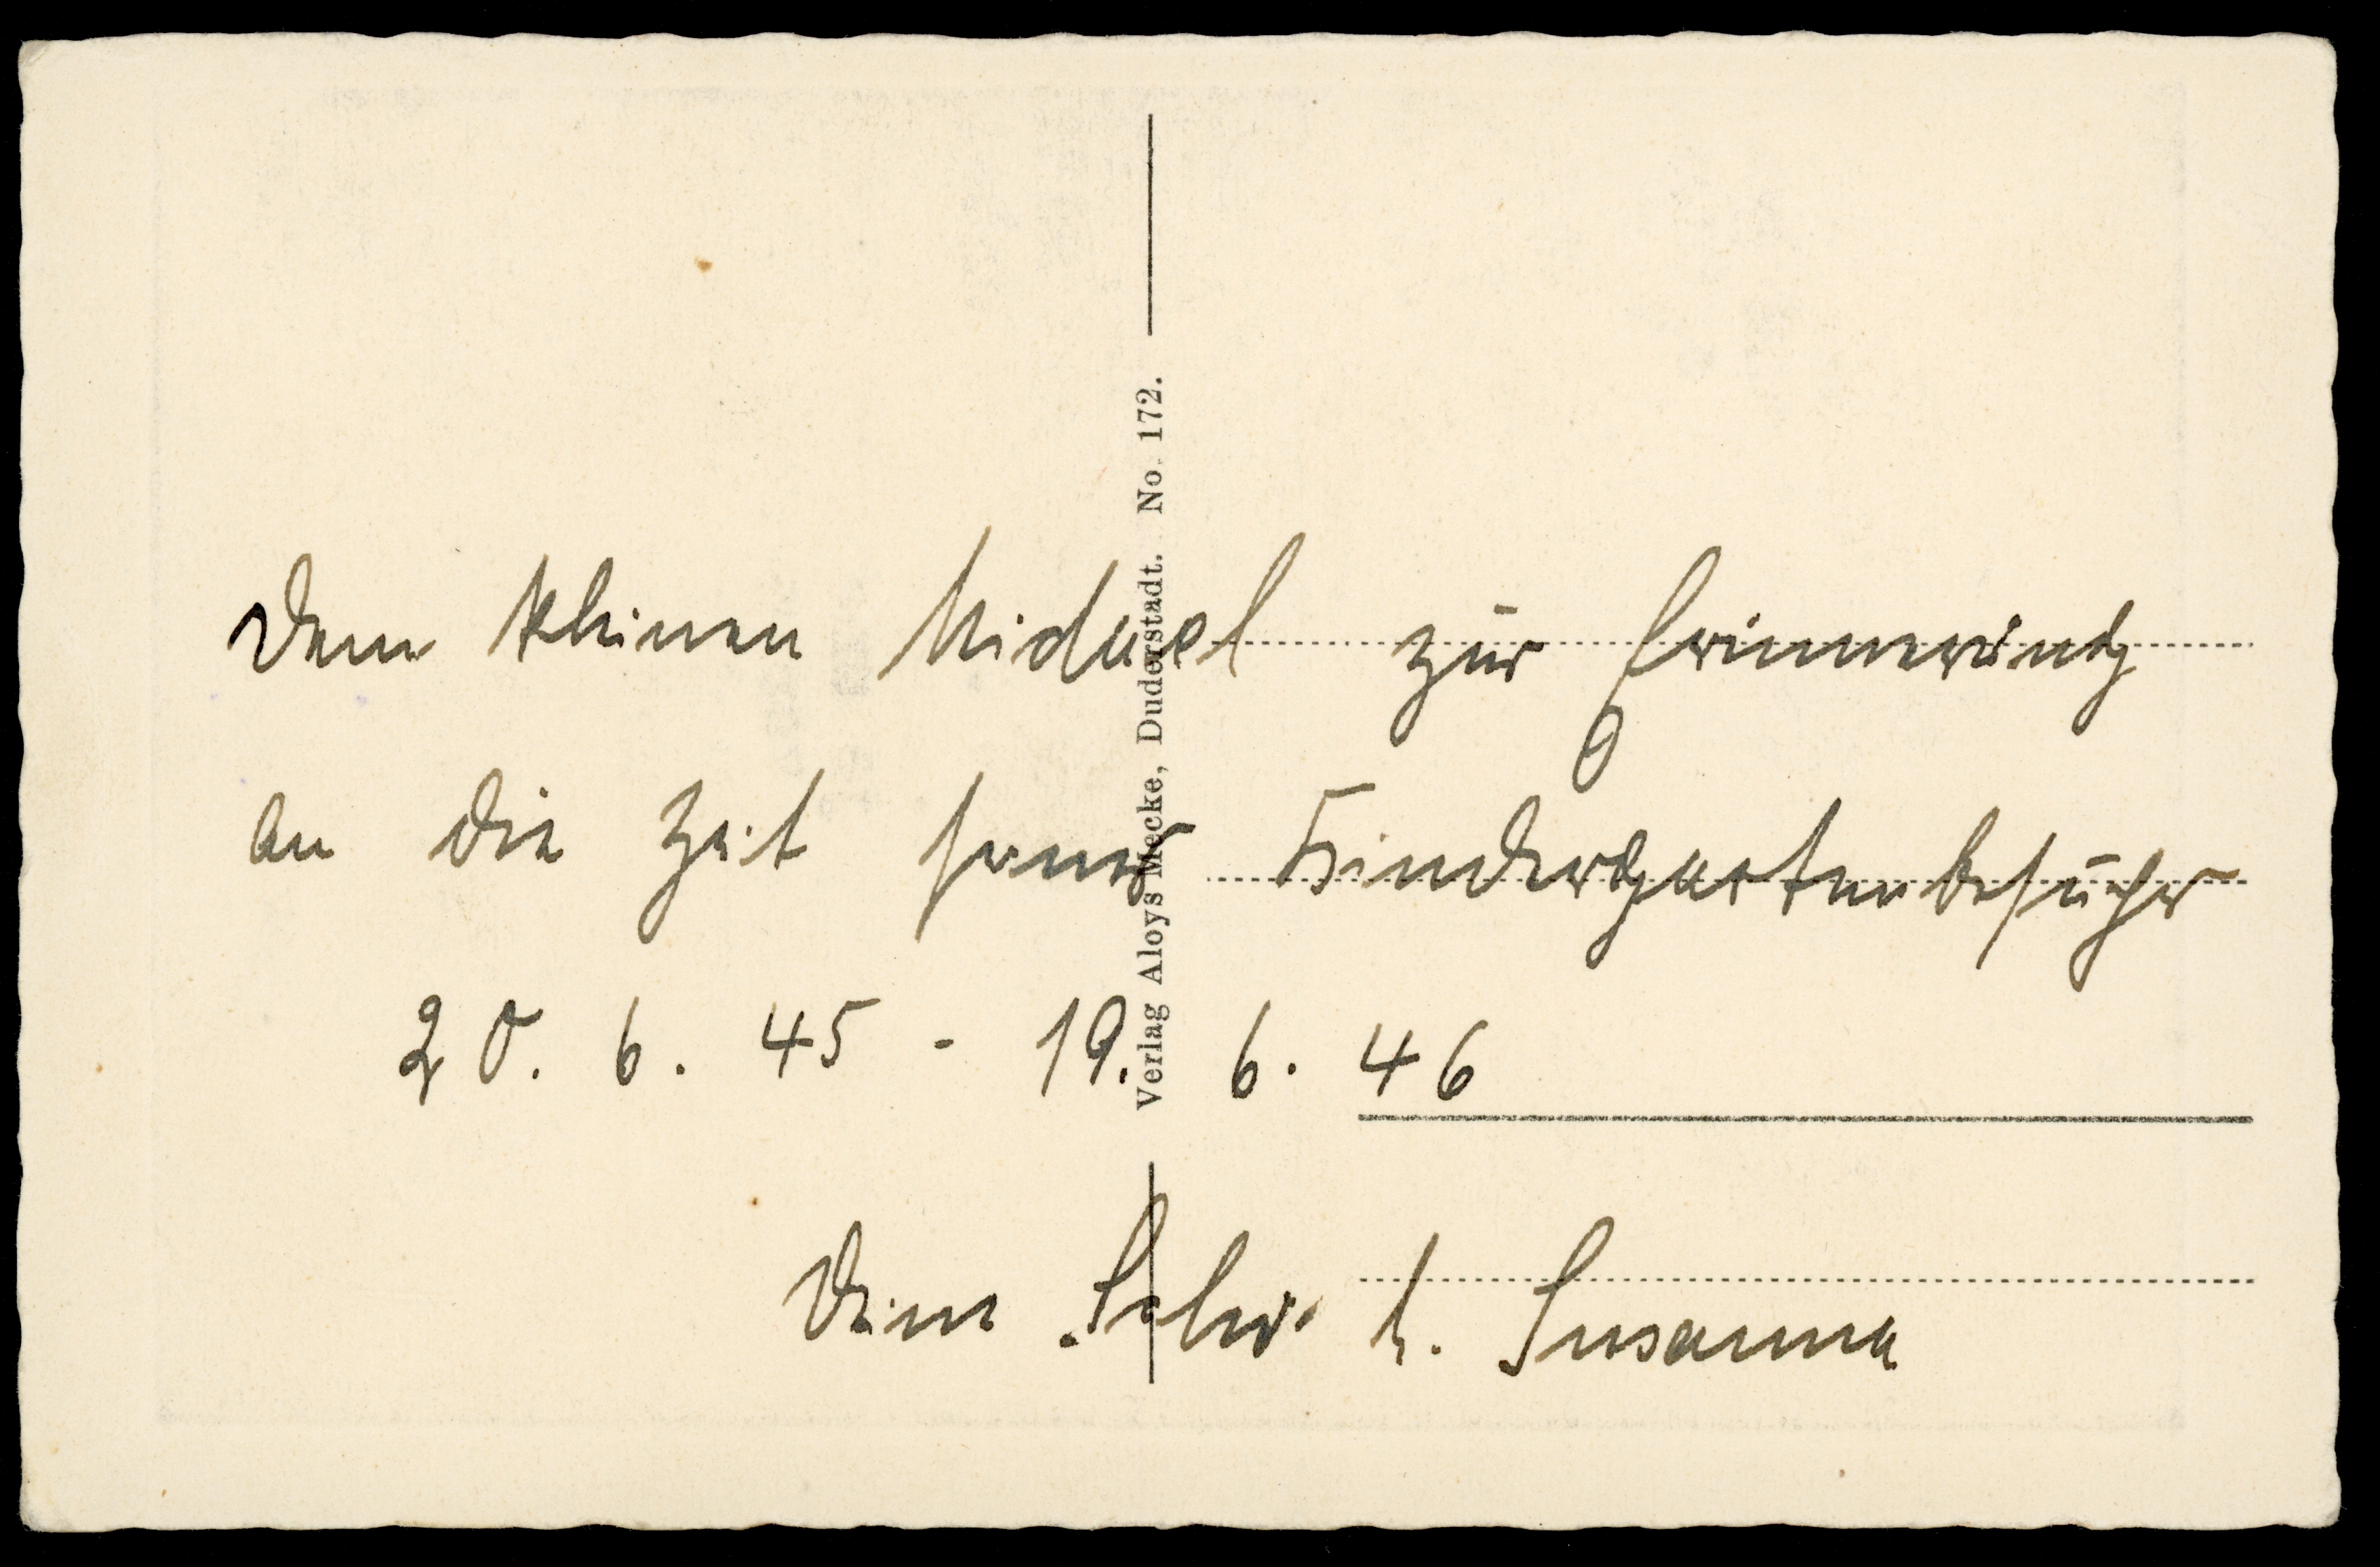 Dem kleinen Michael zur Erinnerung
an die Zeit seines Kindergartenbesuches
20. 6. 45 - 19. 6. 46
Deine Schw. Susanna
Verlag Aloys Mecke, Duderstadt. No. 172.